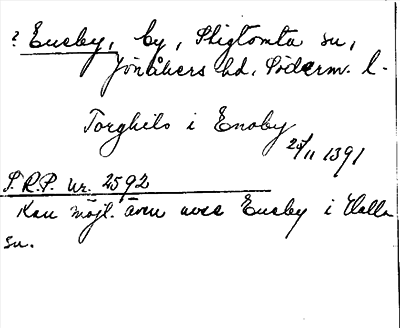 ? Eneby, by, Stigtomta sn,
Jönåkers hd, Söderm. l.
Torghils i Enoby
24/11 1391
S.R.P. nr. 2592
Kan möjl. även avse Eneby i Halla
sn.